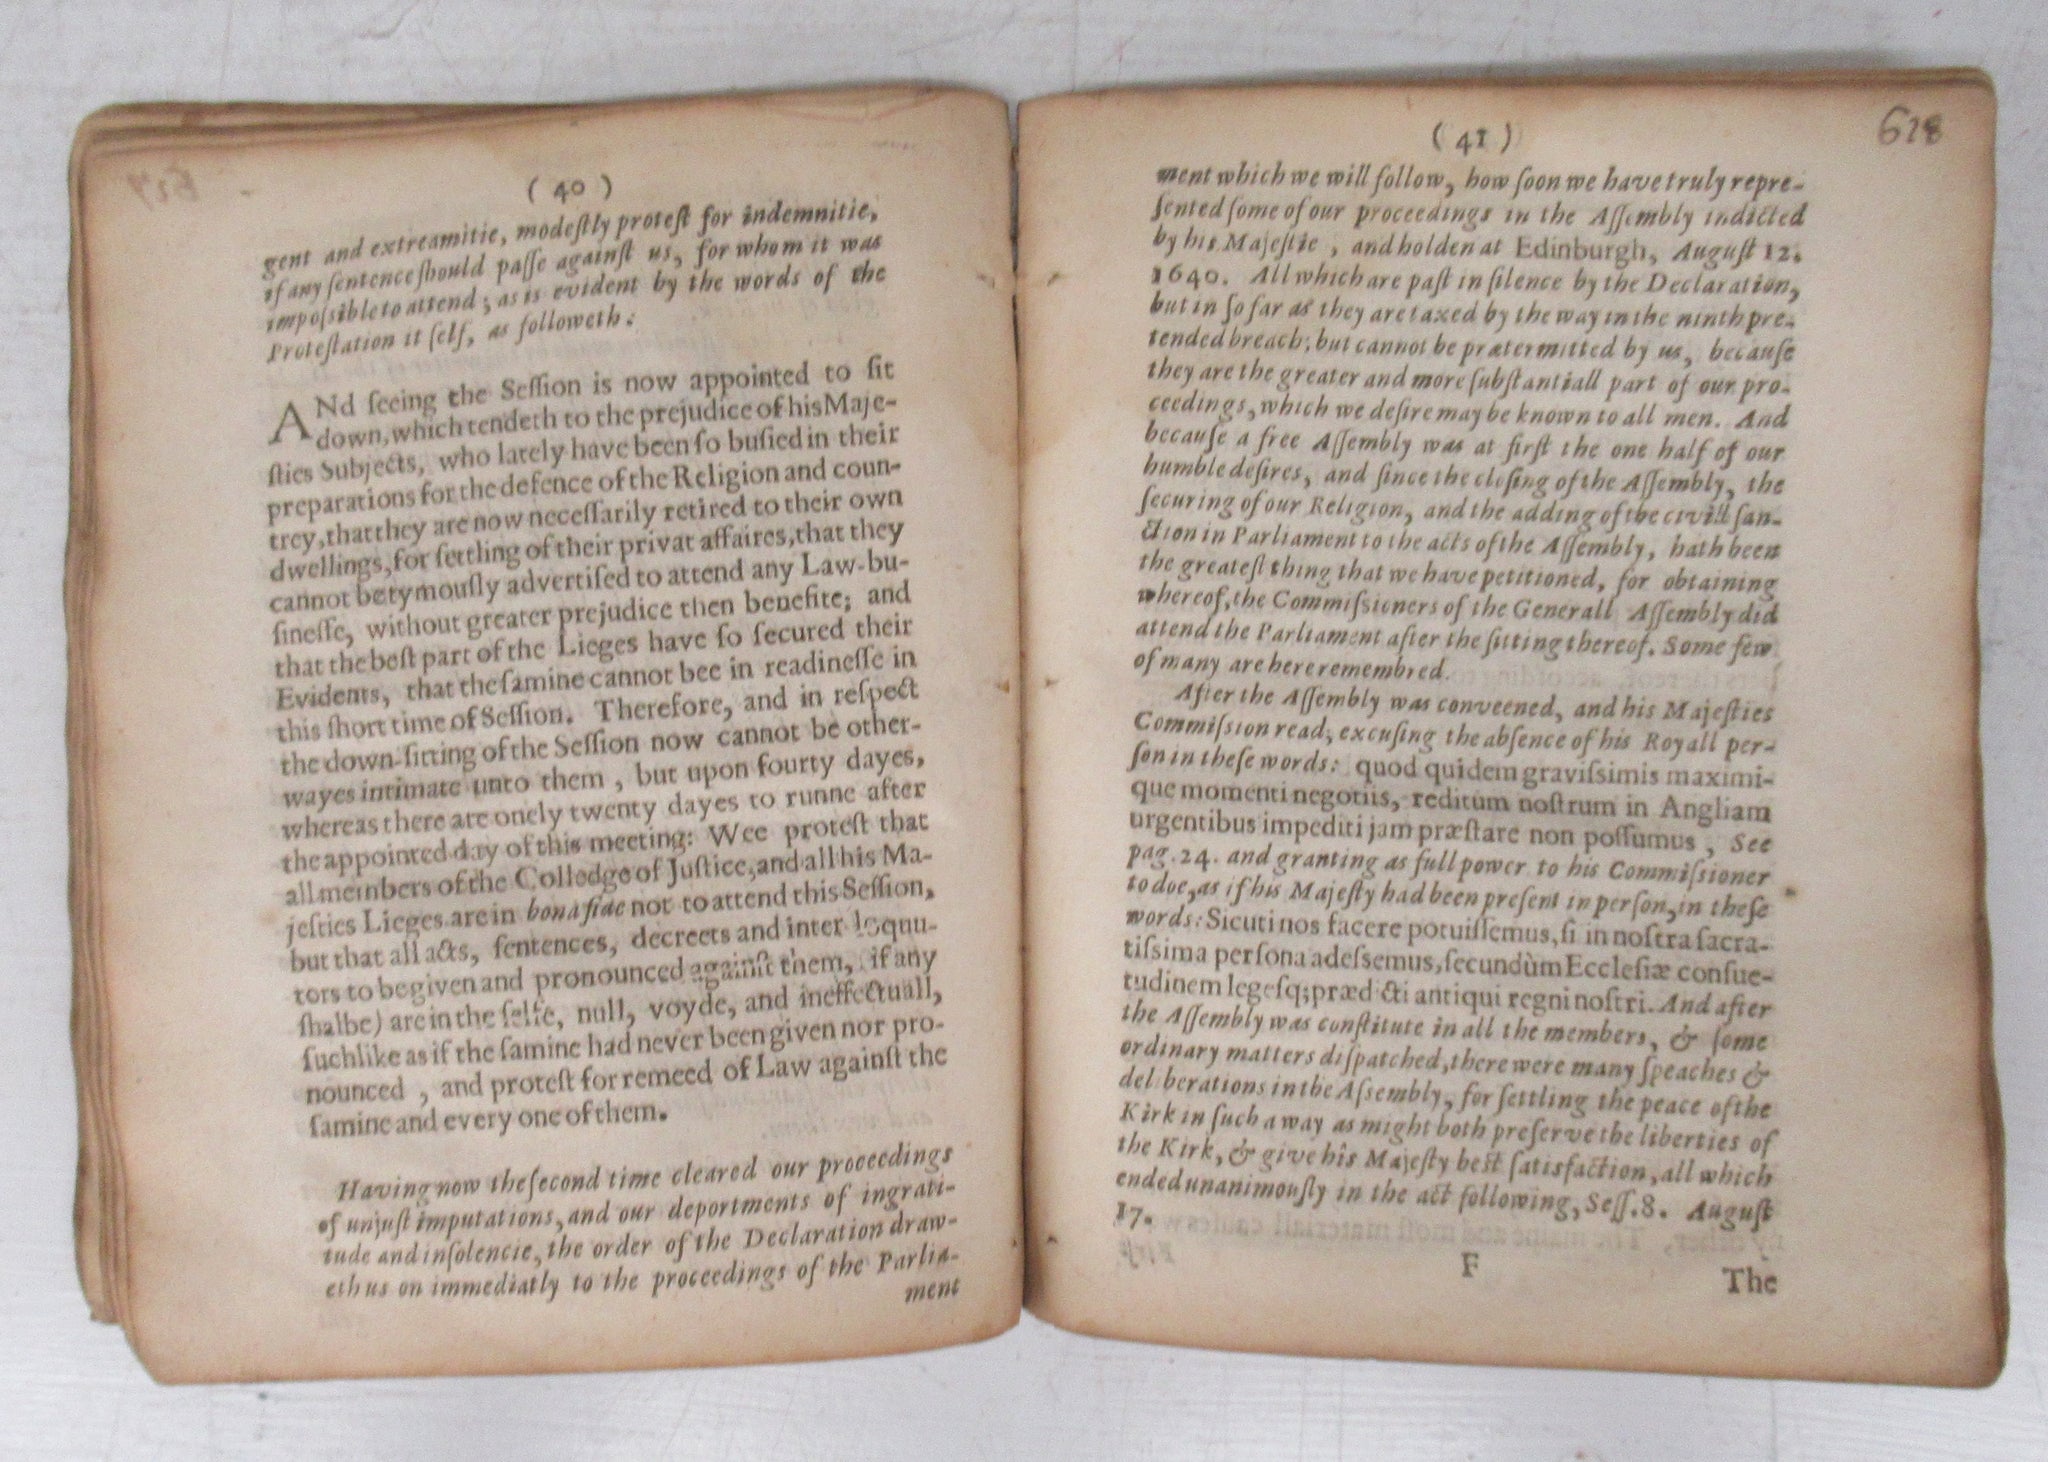 ( 40 )
gent and extreamitie, modeſtly proteſt for indemnitie,
if any ſentence ſhould paſſe againſt us, for whom it was
impoſsible to attend; as is evident by the words of the
Proteſtation it ſelf, as followeth:
ANd ſeeing the Seſſion is now appointed to ſit
down, which tendeth to the prejudice of his Maje-
ſties Subjects, who lately have been ſo buſied in their
preparations for the defence of the Religion and coun-
trey, that they are now neceſſarily retired to their own
dwellings, for ſettling of their privat affaires, that they
cannot be tymouſly advertiſed to attend any Law-bu-
ſineſſe, without greater prejudice then benefite; and
that the beſt part of the Lieges have ſo ſecured their
Evidents, that the ſamine cannot bee in readineſſe in
this ſhort time of Seſſion. Therefore, and in reſpect
the down-ſitting of the Seſſion now cannot be other-
wayes intimate unto them, but upon fourty dayes,
whereas there are onely twenty dayes to runne after
the appointed day of this meeting: Wee proteſt that
all members of the Colledge of Juſtice, and all his Ma-
jeſties Lieges are in bona fide not to attend this Seſſion,
but that all acts, ſentences, decreets and inter loquu-
tors to be given and pronounced againſt them, if any
ſhalbe) are in the ſelfe, null, voyde, and ineffectuall,
ſuchlike as if the ſamine had never been given nor pro-
nounced, and proteſt for remeed of Law againſt the
ſamine and every one of them.
Having now the ſecond time cleared our proceedings
of unjuſt imputations, and our deportments of ingrati-
tude and inſolencie, the order of the Declaration draw-
eth us on immediatly to the proceedings of the Parlia-
ment
618
( 41 )
ment which we will follow, how ſoon we have truly repre-
ſented ſome of our proceedings in the Aſſembly indicted
by his Majeſtie, and holden at Edinburgh, Auguſt 12.
1640. All which are paſt in ſilence by the Declaration,
but in ſo far as they are taxed by the way in the ninth pre-
tended breach; but cannot be prætermitted by us, becauſe
they are the greater and more ſubſtantiall part of our pro-
ceedings, which we deſire may be known to all men. And
becauſe a free Aſſembly was at firſt the one half of our
humble deſires, and ſince the cloſing of the Aſſembly, the
ſecuring of our Religion, and the adding of the civill ſan-
ction in Parliament to the acts of the Aſſembly, hath been
the greateſt thing that we have petitioned, for obtaining
whereof, the Commiſsioners of the Generall Aſſembly did
attend the Parliament after the ſitting thereof. Some few
of many are here remembred.
After the Aſſembly was conveened, and his Majeſties
Commiſsion read, excuſing the abſence of his Royall per-
ſon in theſe words: quod quidem graviſsimis maximi-
que momenti negotiis, reditum noſtrum in Angliam
urgentibus impediti jam præſtare non poſſumus, See
pag. 24. and granting as full power to his Commiſsioner
to doe, as if his Majeſty had been preſent in perſon, in theſe
words: Sicuti nos facere potuiſſemus, ſi in noſtra ſacra-
tiſsima perſona adeſsemus, ſecundùm Eccleſiæ conſue-
tudinem legeſq; præd cti antiqui regni noſtri. And after
the Aſſembly was conſtitute in all the members, & ſome
ordinary matters diſpatched, there were many ſpeaches &
del berations in the Aſsembly, for ſettling the peace of the
Kirk in ſuch a way as might both preſerve the liberties of
the Kirk, & give his Majeſty beſt ſatisfaction, all which
ended unanimouſly in the act following, Seſſ. 8. Auguſt
17.
F
The